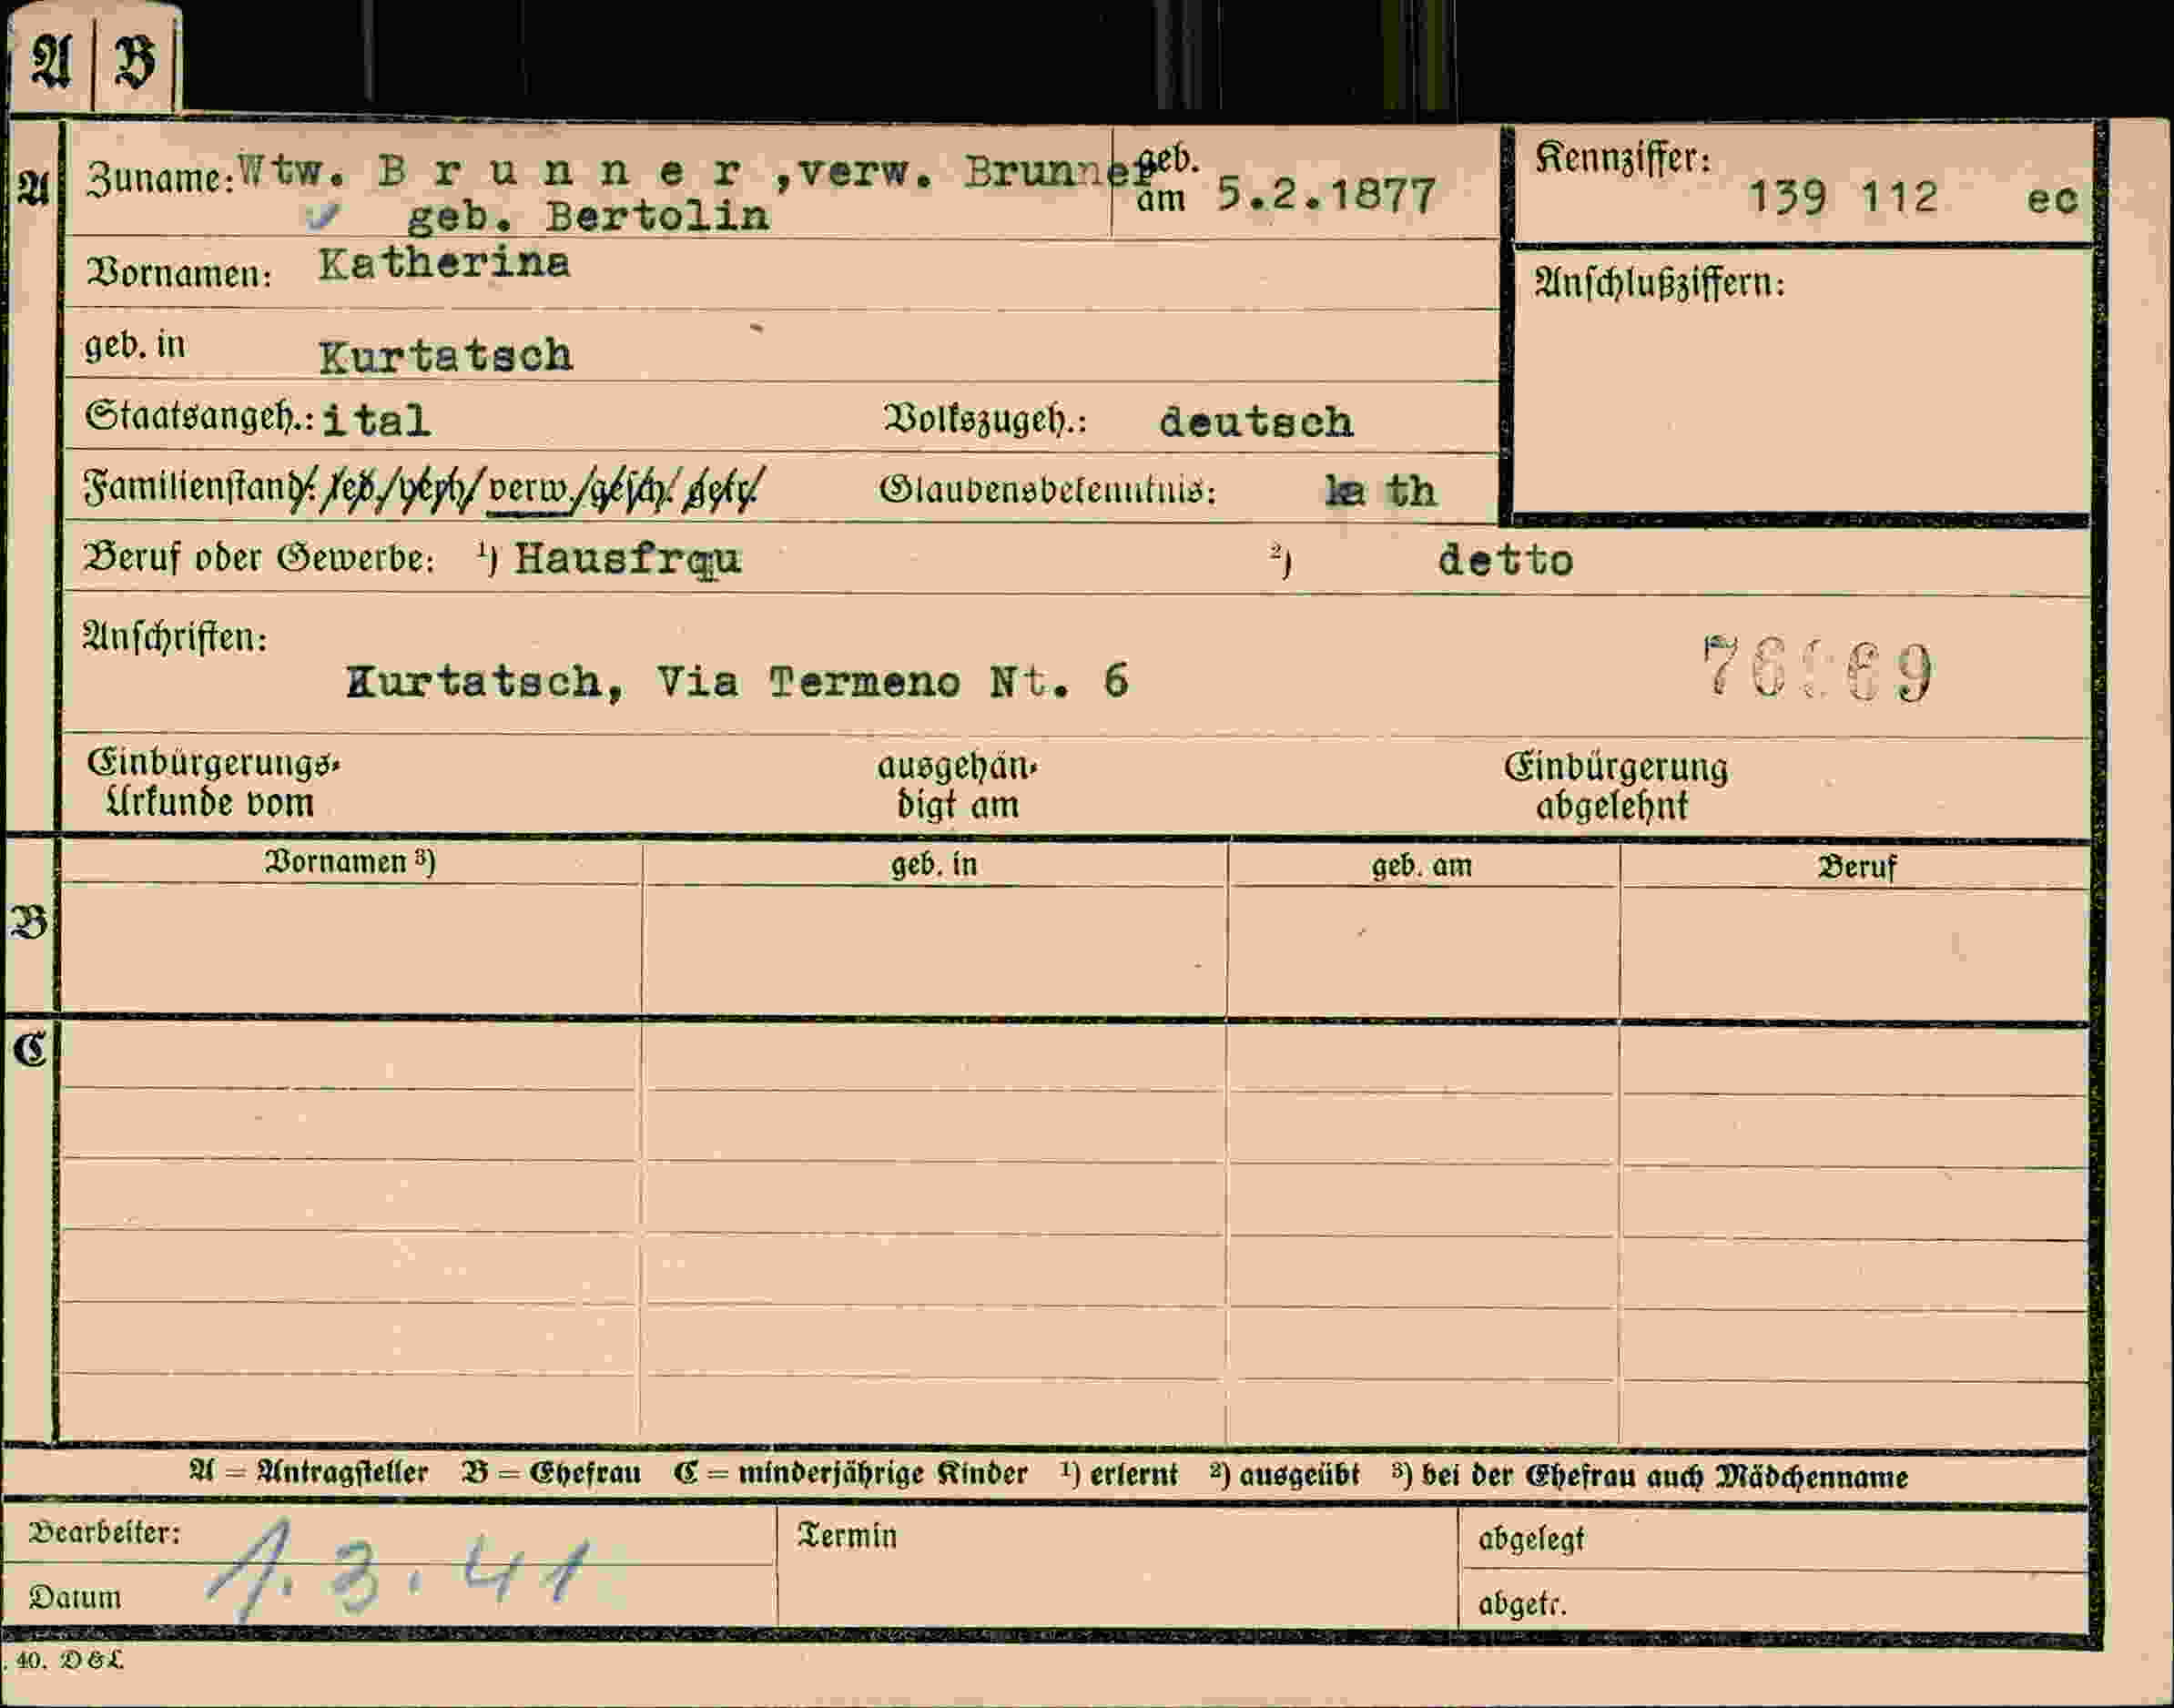 A B
A
Zuname: Wtw. B r u n n e r ,verw. Brunner
geb. Bertolin
geb. am 5.2.1877
Kennziffer:
139 112 ec
Vornamen: Katherina
Anschlußziffern:
geb. in Kurtatsch
Staatsangeh.: ital Volkszugeh.: deutsch
Familienstand: led./verh/verw./gesch./getr. Glaubensbekenntnis: ka th
Beruf oder Gewerbe: ¹) Hausfrqu ²) detto
Anschriften:
Kurtatsch, Via Termeno Nt. 6
Einbürgerungs-
Urkunde vom
ausgehän-
digt am
Einbürgerung
abgelehnt
Vornamen ³) geb. in geb. am Beruf
B
C
A = Antragsteller B = Ehefrau C = minderjährige Kinder ¹) erlernt ²) ausgeübt ³) bei der Ehefrau auch Mädchenname
Bearbeiter:
Datum 1.3.41
Termin
abgelegt
abgetr.
. 40. D & L